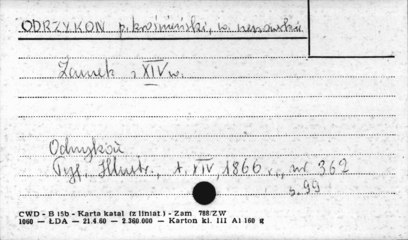 ODRZYKOŃ p. krośnieński, w. rzeszowskie
Zamek z XIV w.
Odrzykoń
Tyg. Illustr., t. XIV, 1866 r., nr 362
s. 99
CWD - B 15b - Karta katal. (z liniat.) - Zam 788/ZW
1060 — ŁDA — 21.4.60 — 2.360.000 — Karton kl. III A1 160 g